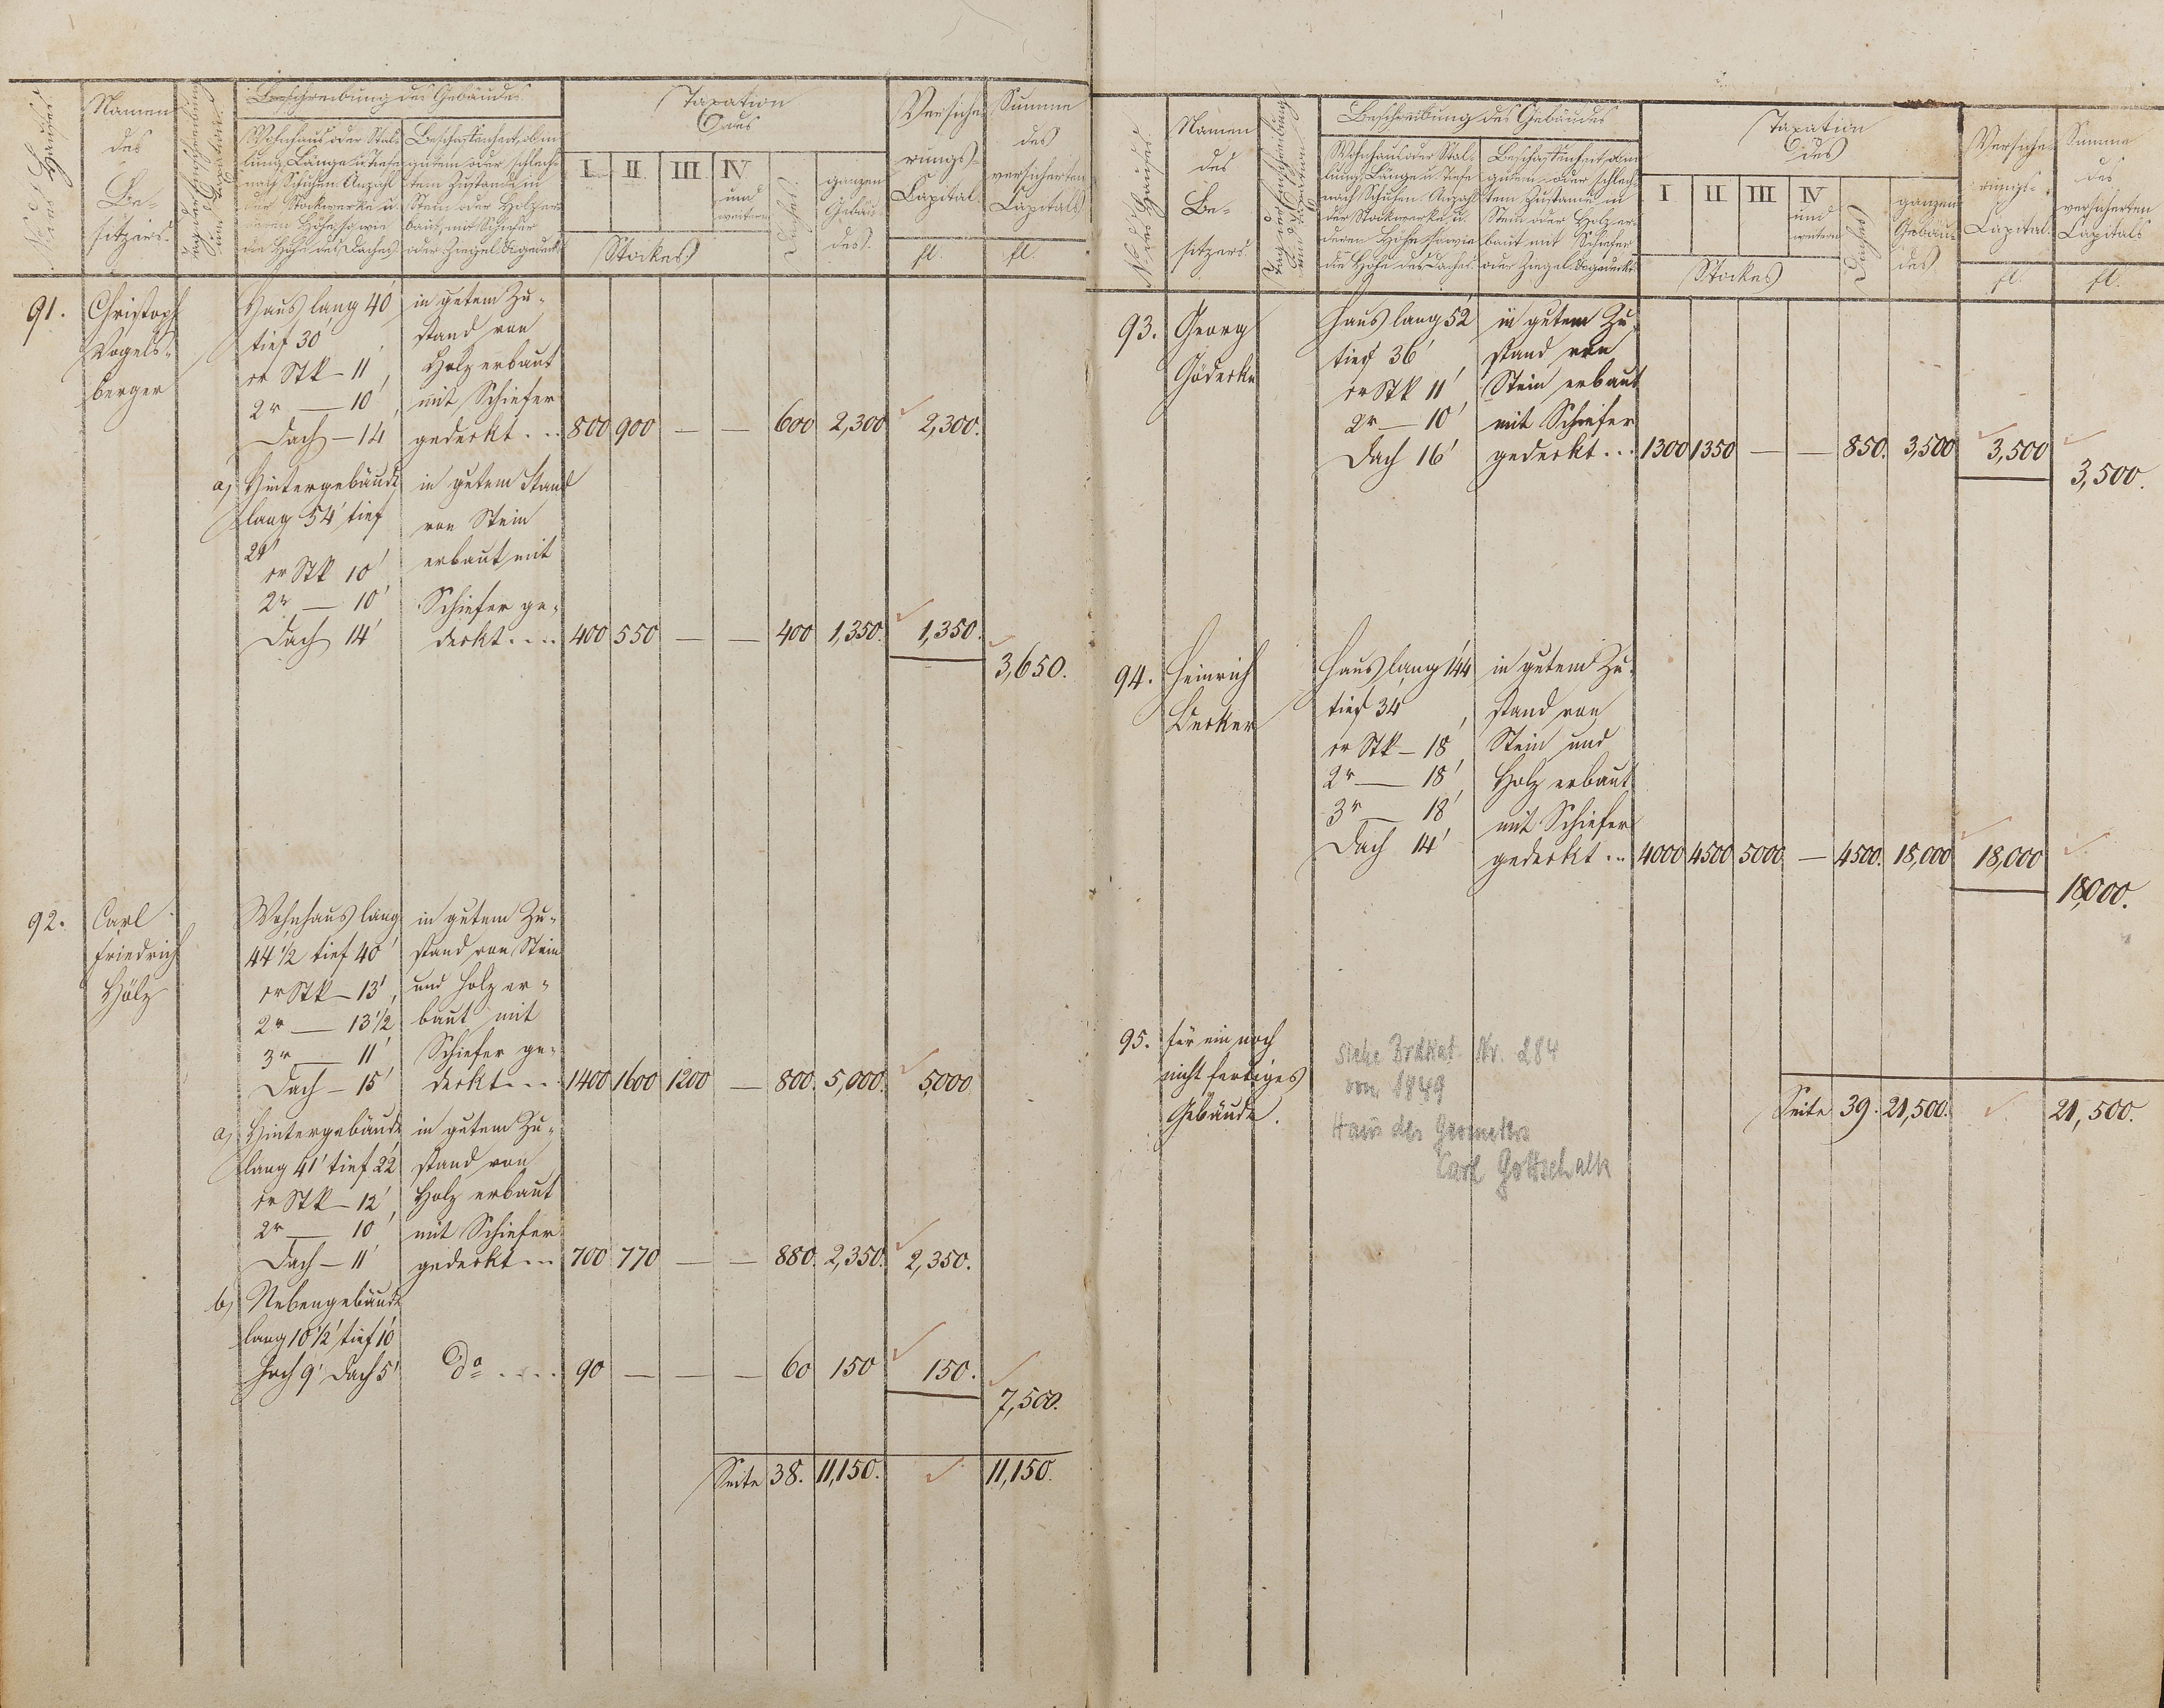 No des Hauses.
Namen
des
Be-
sitzers.
Tag der Einschreibung
und Taxation.
Beschreibung des Gebäudes
Wohnhaus oder Stal-
lung, Länge u. Tiefe
nach Schuhen. Anzahl
der Stockwerke u.
deren Höhe, sowie
die Höhe des Daches.
Beschaffenheit, ob in
gutem oder schlech-
tem Zustande, in
Stein oder Holz er-
baut, mit Schiefer
oder Ziegel &c gedeckt.
Taxation
des
I. II. III. IV
und
weitern
Stockes
Daches.
ganzen
Gebäu-
des.
Versiche-
rungs-
Capital
fl.
Summe
des
versicherten
Capitals
fl.
91. Christoph
Vogels-
berger
Haus lang 40'
tief 30'
1r Stk — 11'
2r — 10'
Dach — 14'
in gutem Zu-
stand von
Holz erbaut
mit Schiefer
gedeckt . . . 800 900 — — 600 2,300 2,300.
a) Hintergebäude
lang 54' tief
24'
1r Stk 10'
2r — 10'
Dach 14'
in gutem Stand
von Stein
erbaut mit
Schiefer ge-
deckt . . . . 400 550 — — 400 1,350. 1,350.
3,650.
92. Carl
Friedrich
Hölz
Wohnhaus lang
44½ tief 40'
1r Stk — 13'
2r — 13½
3r — 11'
Dach — 15'
in gutem Zu-
stand von Stein
und Holz er-
baut mit
Schiefer ge-
deckt . . . 1400 1600 1200 — 800. 5,000. 5,000
a) Hintergebäude
lang 41' tief 22'
1r Stk — 12'
2r — 10'
Dach — 11'
in gutem Zu-
stand von
Holz erbaut
mit Schiefer
gedeckt . . . 700 770 — — 880. 2,350. 2,350.
b) Nebengebäude
lang 10½' tief 10'
hoch 9' Dach 5'
do . . . . 90 — — — 60 150 150.
7,500.
Seite 38. 11,150. 11,150.
No des Hauses.
Namen
des
Be-
sitzers.
Tag der Einschreibung
und Taxation.
Beschreibung des Gebäudes
Wohnhaus oder Stal-
lung, Länge u. Tiefe
nach Schuhen. Anzahl
der Stockwerke u.
deren Höhe sowie
die Höhe des Daches.
Beschaffenheit, ob in
gutem oder schlech-
tem Zustande in
Stein oder Holz er-
baut mit Schiefer
oder Ziegel &c gedeckt.
Taxation
des
I II III IV
und
weitern
Stockes
Daches
ganzen
Gebäu-
des
Versiche-
rungs-
Capital.
fl.
Summe
des
versicherten
Capitals
fl.
93. Georg
Gödecke
Haus lang 52'
tief 36'
1r Stk 11'
2r — 10'
Dach 16'
in gutem Zu-
stand von
Stein erbaut
mit Schiefer
gedeckt . . . 1300 1350 — — 850. 3,500 3,500
3,500.
94. Heinrich
Becker
Haus lang 144'
tief 34'
1r Stk — 18'
2r — 18'
3r — 18'
Dach 14'
in gutem Zu-
stand von
Stein und
Holz erbaut
mit Schiefer
gedeckt . . 4000 4500 5000 — 4500. 18,000 18,000
18,000.
95. für ein noch
nicht fertiges
Gebäude.
siehe Brdkat. Nr. 284
von 1849
Haus des Geometers
Carl Gottschalk
Seite 39. 21,500. 21,500.